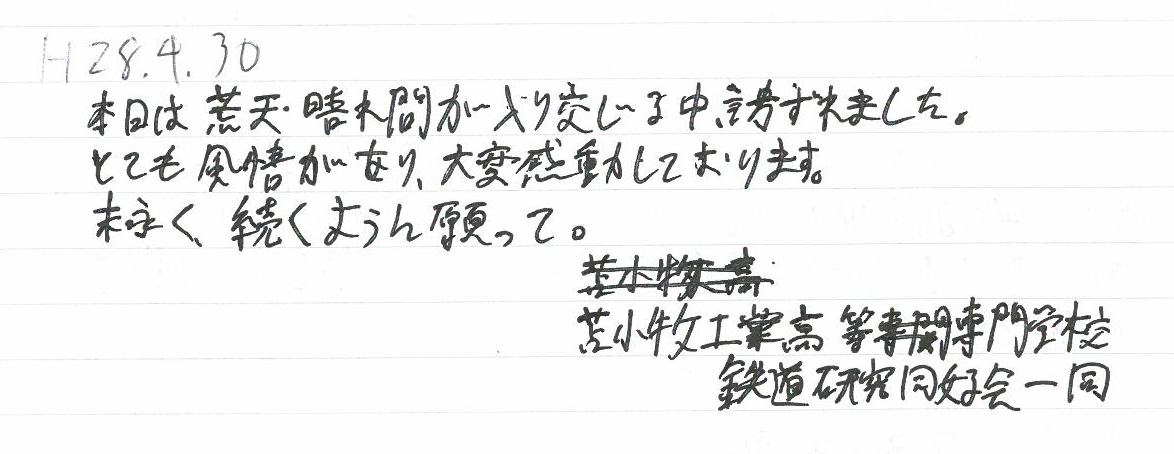 H28.4.30
本日は荒天・晴れ間が入り交じる中、訪ずれました。
とても風情があり、大変感動しております。
末永く、続くように願って。
苫小牧高
苫小牧工業高等専門学校
鉄道研究同好会一同